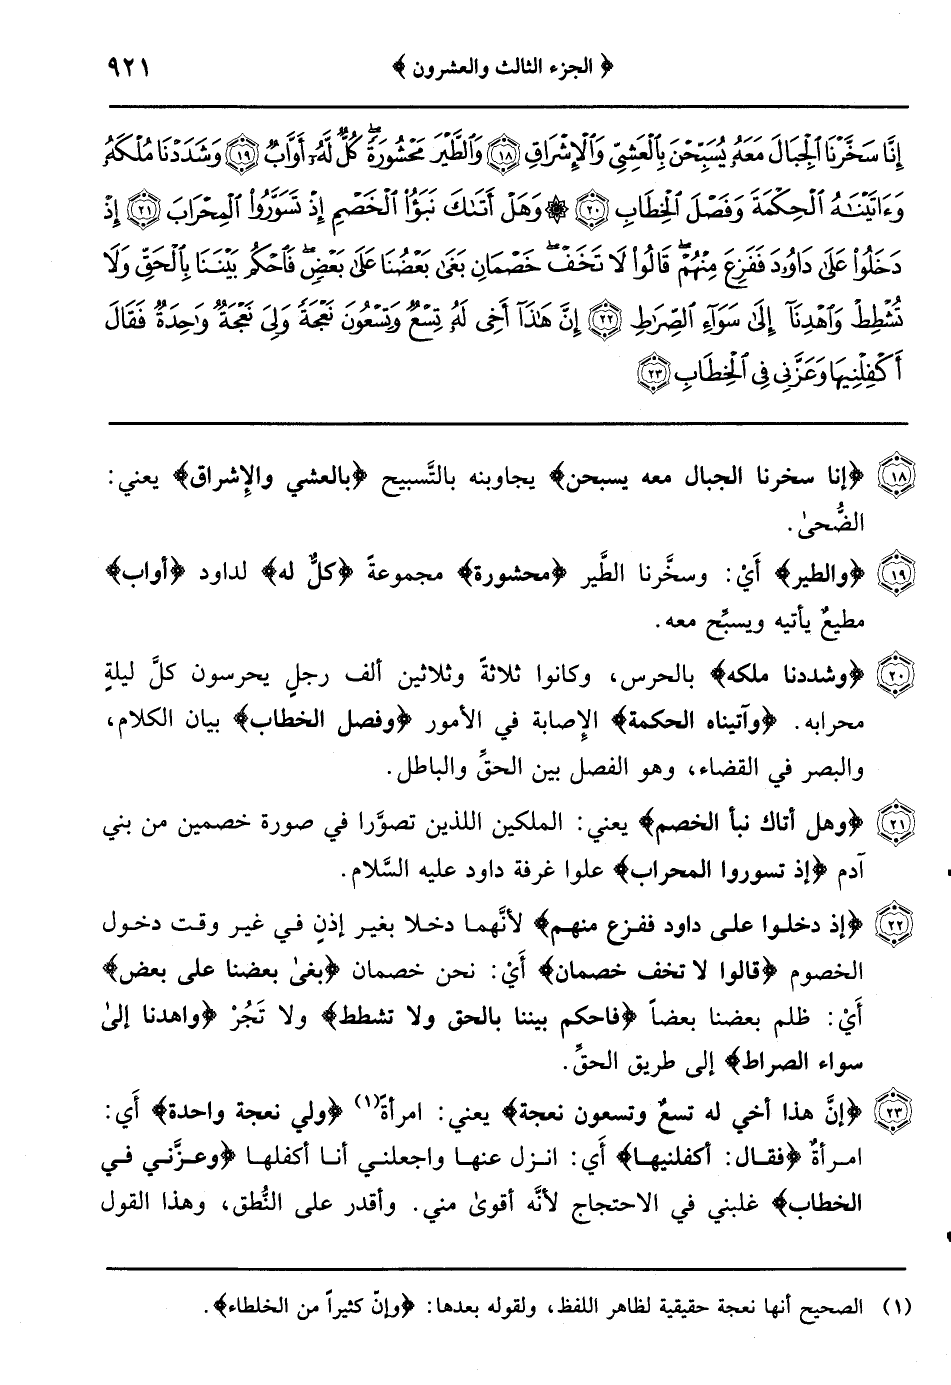 ﴿ الجزء الثالث والعشرون ﴾ ٩٢١
إِنَّا سَخَّرْنَا ٱلْجِبَالَ مَعَهُۥ يُسَبِّحْنَ بِٱلْعَشِيِّ وَٱلْإِشْرَاقِ ۝١٨ وَٱلطَّيْرَ مَحْشُورَةً ۖ كُلٌّ لَّهُۥٓ أَوَّابٌ ۝١٩ وَشَدَدْنَا مُلْكَهُۥ
وَءَاتَيْنَـٰهُ ٱلْحِكْمَةَ وَفَصْلَ ٱلْخِطَابِ ۝٢٠ ۞ وَهَلْ أَتَىٰكَ نَبَؤُا۟ ٱلْخَصْمِ إِذْ تَسَوَّرُوا۟ ٱلْمِحْرَابَ ۝٢١ إِذْ
دَخَلُوا۟ عَلَىٰ دَاوُۥدَ فَفَزِعَ مِنْهُمْ ۖ قَالُوا۟ لَا تَخَفْ ۖ خَصْمَانِ بَغَىٰ بَعْضُنَا عَلَىٰ بَعْضٍ فَٱحْكُم بَيْنَنَا بِٱلْحَقِّ وَلَا
تُشْطِطْ وَٱهْدِنَآ إِلَىٰ سَوَآءِ ٱلصِّرَٰطِ ۝٢٢ إِنَّ هَـٰذَآ أَخِى لَهُۥ تِسْعٌ وَتِسْعُونَ نَعْجَةً وَلِىَ نَعْجَةٌ وَٰحِدَةٌ فَقَالَ
أَكْفِلْنِيهَا وَعَزَّنِى فِى ٱلْخِطَابِ ۝٢٣
١٨ ﴿إنا سخرنا الجبال معه يسبحن﴾ يجاوبنه بالتَّسبيح ﴿بالعشي والإشراق﴾ يعني:
الضُّحىٰ.
١٩ ﴿والطير﴾ أَيْ: وسخَّرنا الطَّير ﴿محشورة﴾ مجموعةً ﴿كلٌّ له﴾ لداود ﴿أواب﴾
مطيعٌ يأتيه ويسبِّح معه.
٢٠ ﴿وشددنا ملكه﴾ بالحرس، وكانوا ثلاثةً وثلاثين ألف رجلٍ يحرسون كلَّ ليلةٍ
محرابه. ﴿وآتيناه الحكمة﴾ الإصابة في الأمور ﴿وفصل الخطاب﴾ بيان الكلام،
والبصر في القضاء، وهو الفصل بين الحقِّ والباطل.
٢١ ﴿وهل أتاك نبأ الخصم﴾ يعني: الملكين اللذين تصوَّرا في صورة خصمين من بني
آدم ﴿إذ تسوروا المحراب﴾ علوا غرفة داود عليه السَّلام.
٢٢ ﴿إذ دخلوا على داود ففزع منهم﴾ لأنَّهما دخلا بغير إذنٍ في غير وقت دخول
الخصوم ﴿قالوا لا تخف خصمان﴾ أَيْ: نحن خصمان ﴿بغىٰ بعضنا على بعض﴾
أَيْ: ظلم بعضنا بعضاً ﴿فاحكم بيننا بالحق ولا تشطط﴾ ولا تَجُرْ ﴿واهدنا إلىٰ
سواء الصراط﴾ إلى طريق الحقِّ.
٢٣ ﴿إنَّ هذا أخي له تسعٌ وتسعون نعجة﴾ يعني: امرأةً(١) ﴿ولي نعجة واحدة﴾ أَي:
امرأةٌ ﴿فقال: أكفلنيها﴾ أَي: انزل عنها واجعلني أنا أكفلها ﴿وعزَّني في
الخطاب﴾ غلبني في الاحتجاج لأنَّه أقوىٰ مني. وأقدر على النُّطق، وهذا القول
(١) الصحيح أنها نعجة حقيقية لظاهر اللفظ، ولقوله بعدها: ﴿وإنّ كثيراً من الخلطاء﴾.